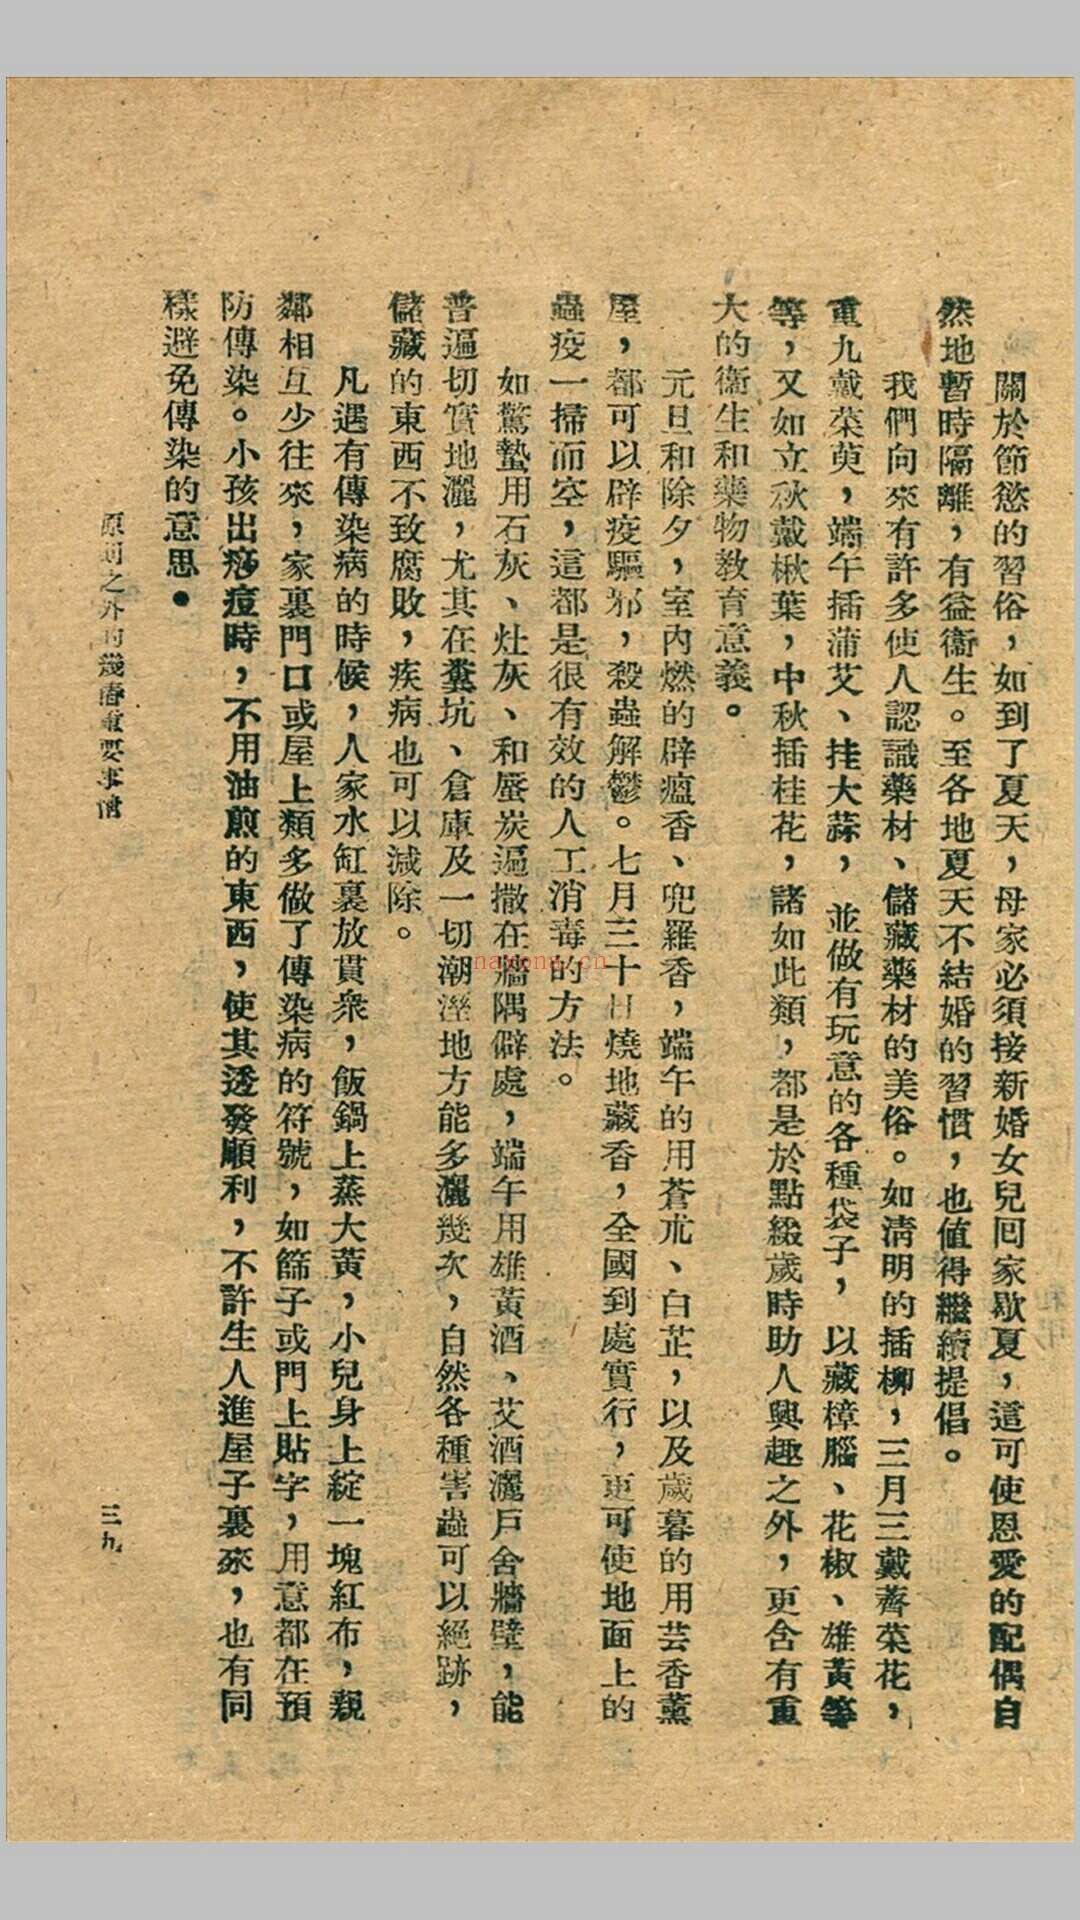 關於節慾的習俗，如到了夏天，母家必須接新婚女兒回家歇夏，這可使恩愛的配偶自
然地暫時隔離，有益衞生。至各地夏天不結婚的習慣，也值得繼續提倡。
我們向來有許多使人認識藥材、儲藏藥材的美俗。如淸明的插柳，三月三戴薺菜花，
重九戴茱萸，端午插蒲艾、挂大蒜，並做有玩意的各種袋子，以藏樟腦、花椒、雄黃等
等，又如立秋戴楸葉，中秋插桂花，諸如此類，都是於點綴歲時助人興趣之外，更含有重
大的衞生和藥物敎育意義。
元旦和除夕，室內燃的辟瘟香、兜羅香，端午的用蒼朮、白芷，以及歲暮的用芸香薰
屋，都可以辟疫驅邪，殺蟲解鬱。七月三十日燒地藏香，全國到處實行，更可使地面上的
蟲疫一掃而空，這都是很有效的人工消毒的方法。
如驚蟄用石灰、灶灰、和蜃炭遍撒在牆隅僻處，端午用雄黃酒、艾酒灑戶舍牆壁，能
普遍切實地灑，尤其在糞坑、倉庫及一切潮溼地方能多灑幾次，自然各種害蟲可以絕跡，
儲藏的東西不致腐敗，疾病也可以減除。
凡遇有傳染病的時候，人家水缸裏放貫衆，飯鍋上蒸大黃，小兒身上綻一塊紅布，親
鄰相互少往來，家裏門口或屋上類多做了傳染病的符號，如篩子或門上貼字，用意都在預
防傳染。小孩出痧痘時，不用油煎的東西，使其透發順利，不許生人進屋子裏來，也有同
樣避免傳染的意思●
原則之外的幾樁重要事情
三九
naxona.cn